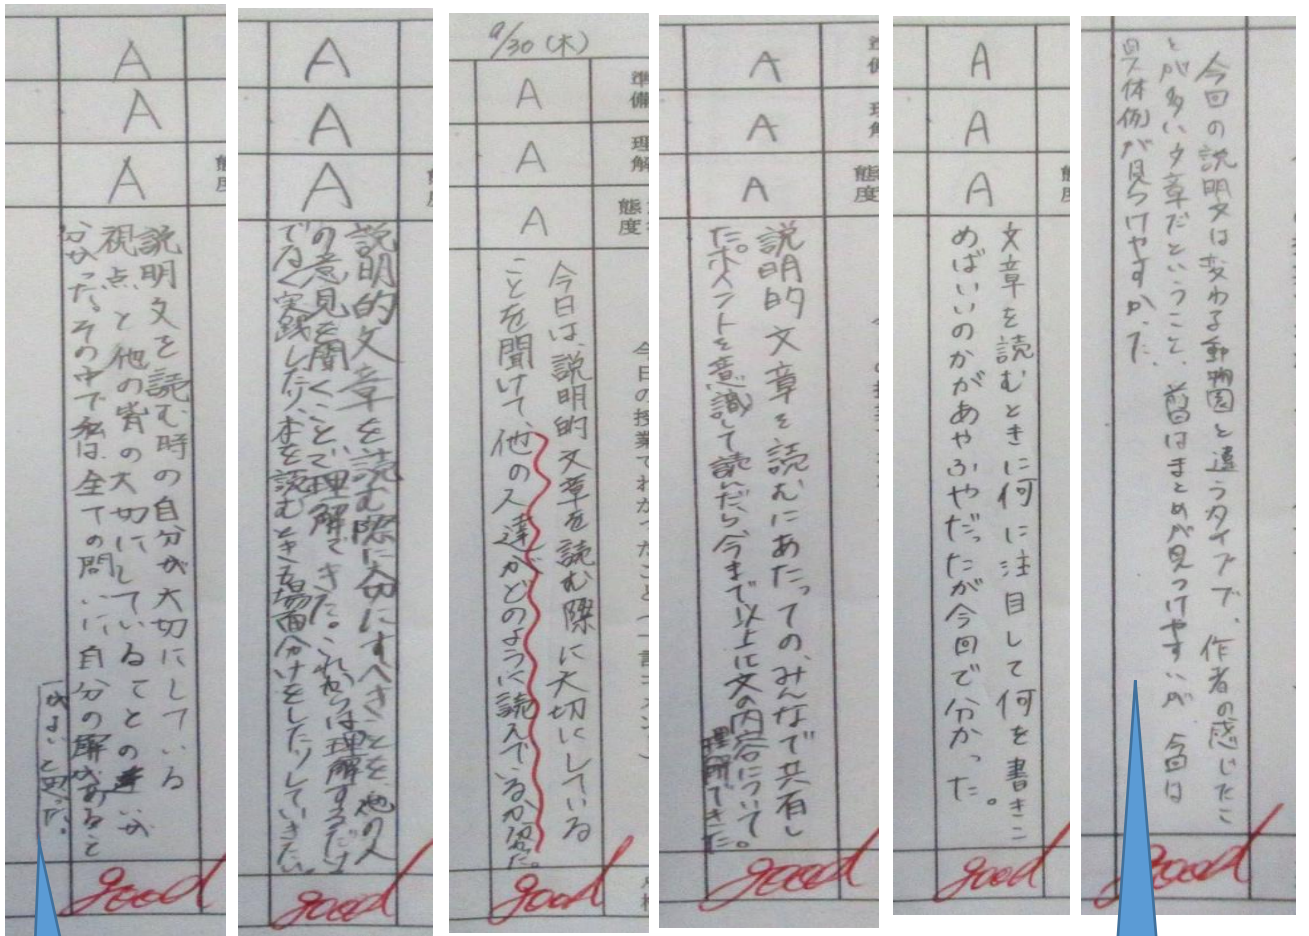 A
A
A
説明文を読む時の自分が大切にしている
視点と他の皆の大切にしているてとの
分かった。その中で私は全ての問いに自分の解があること
がよいと思った。
good
A
A
A
説明的文章を読む際に大切にすべきことを他の人
の意見を聞くことで理解できた。これからは理解するだけ
でなく実践したり、本を読むとき場面分けをしたりしていきたい。
good
9/30(木)
準備
A
理解
A
態度
A
今日の授業でわかったこと(一言コメント)
今日は、説明的文章を読む際に大切にしている
ことを聞けて、他の人達がどのように読んでいるか分かった。
good
A
A
態度
A
説明的文章を読むにあたってのみんなで共有し
た。ポイントを意識して読んだら今まで以上に文の内容について
理解できた。
good
A
A
態度
A
文章を読むときに何に注目して何を書きこ
めばいいのかがあやふやだったが今回で分かった。
good
今回の説明文は変わる動物園と違うタイプで、作者の感じたこ
とが多い文章だということ、前回はまとめが見つけやすいが今回は
具体例が見つけやすかった。
good